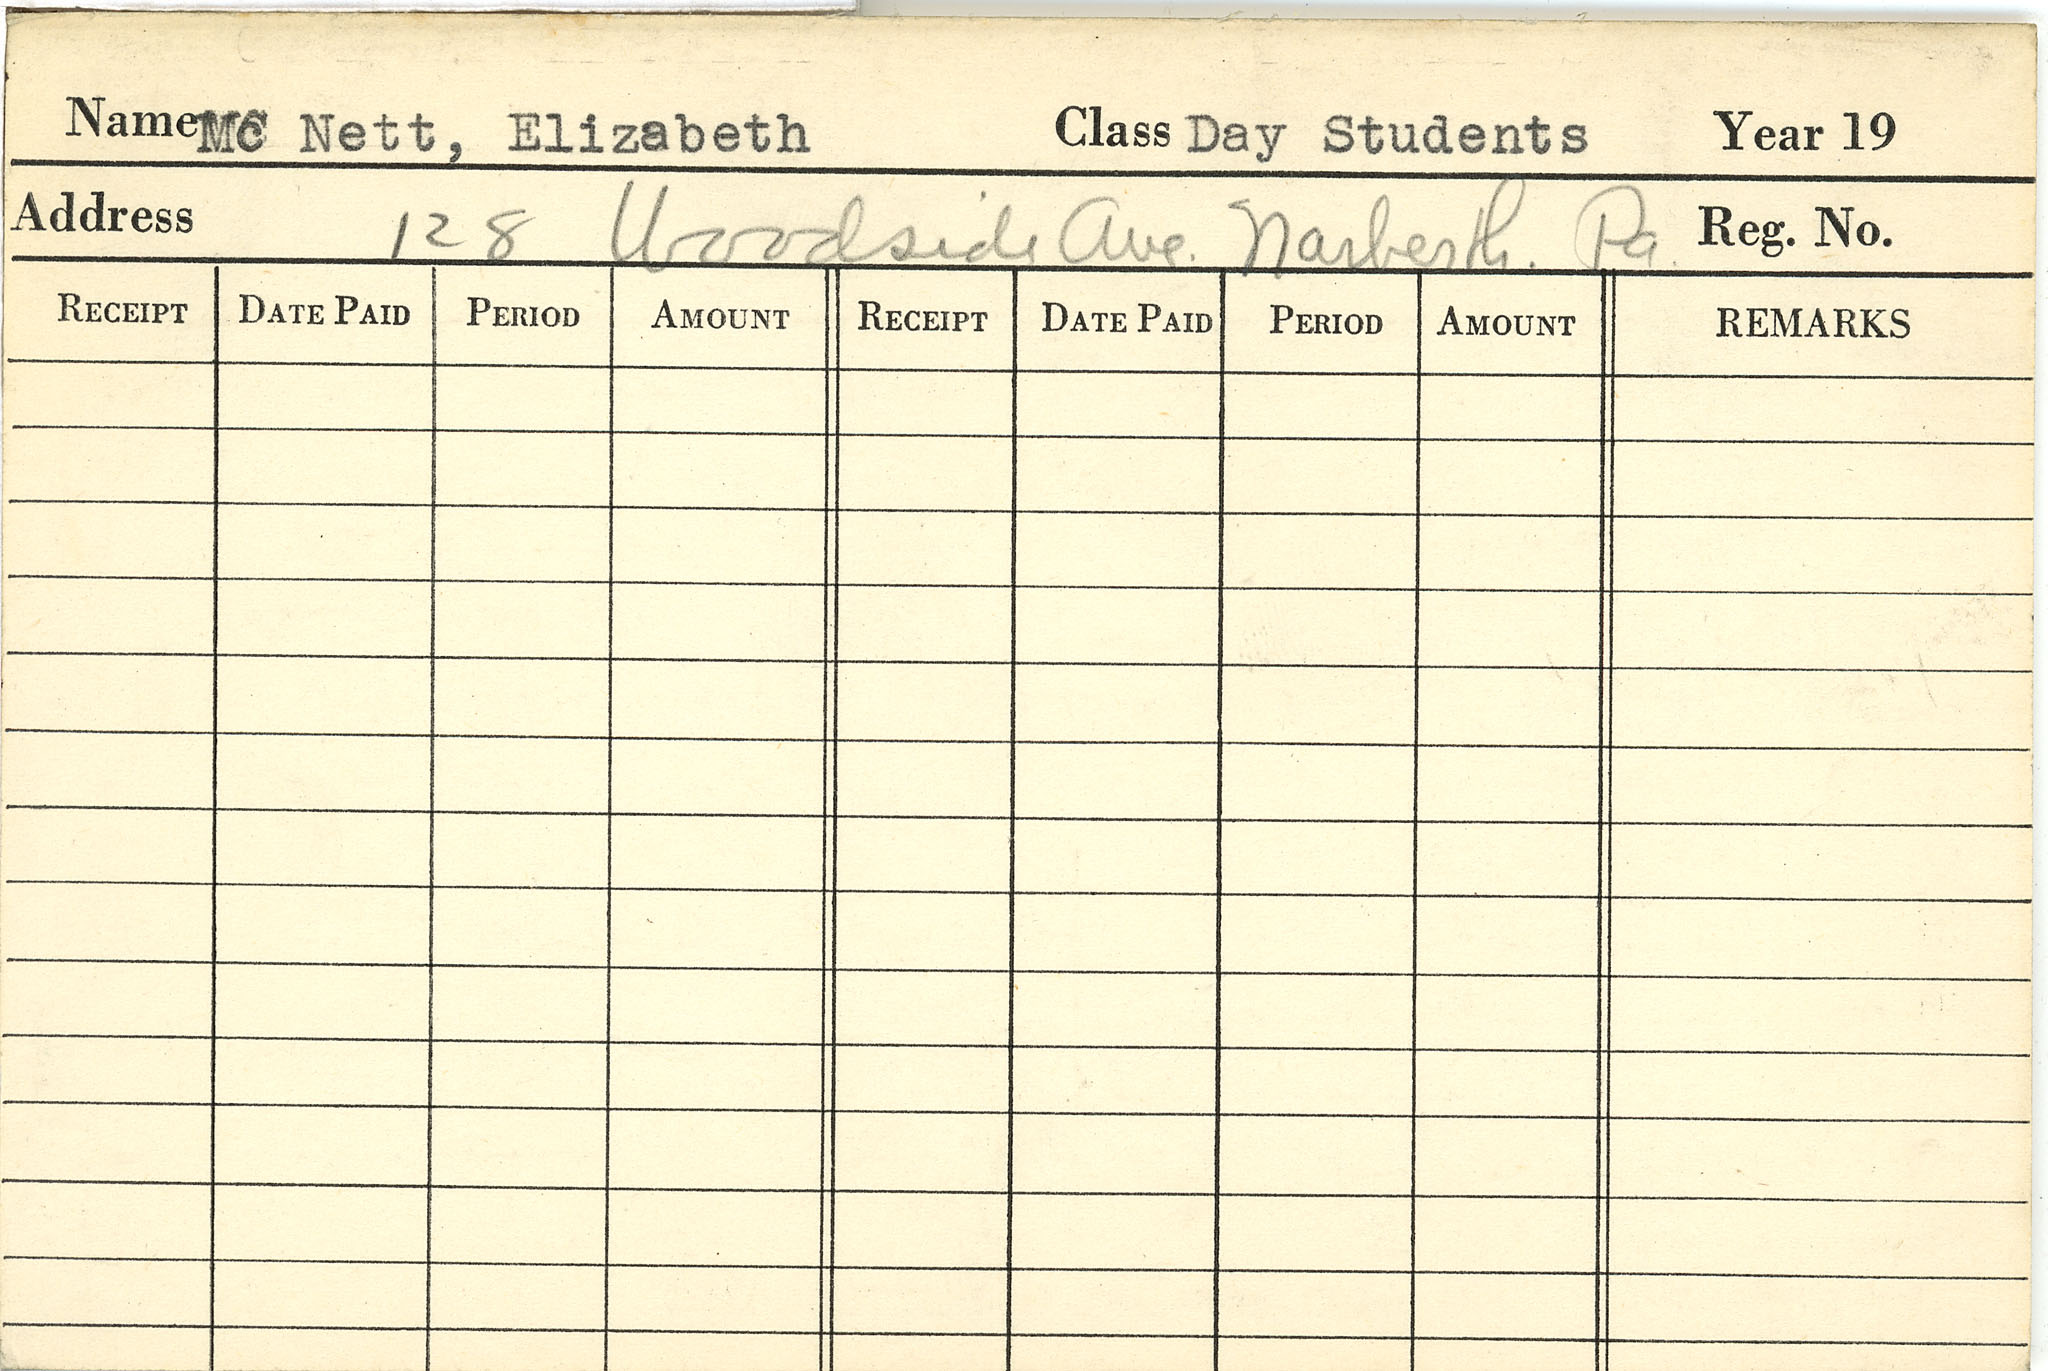 Name Mc Nett, Elizabeth Class Day Students Year 19
Address 128 Woodside Ave. Narberth. Pa. Reg. No.
RECEIPT DATE PAID PERIOD AMOUNT RECEIPT DATE PAID PERIOD AMOUNT REMARKS